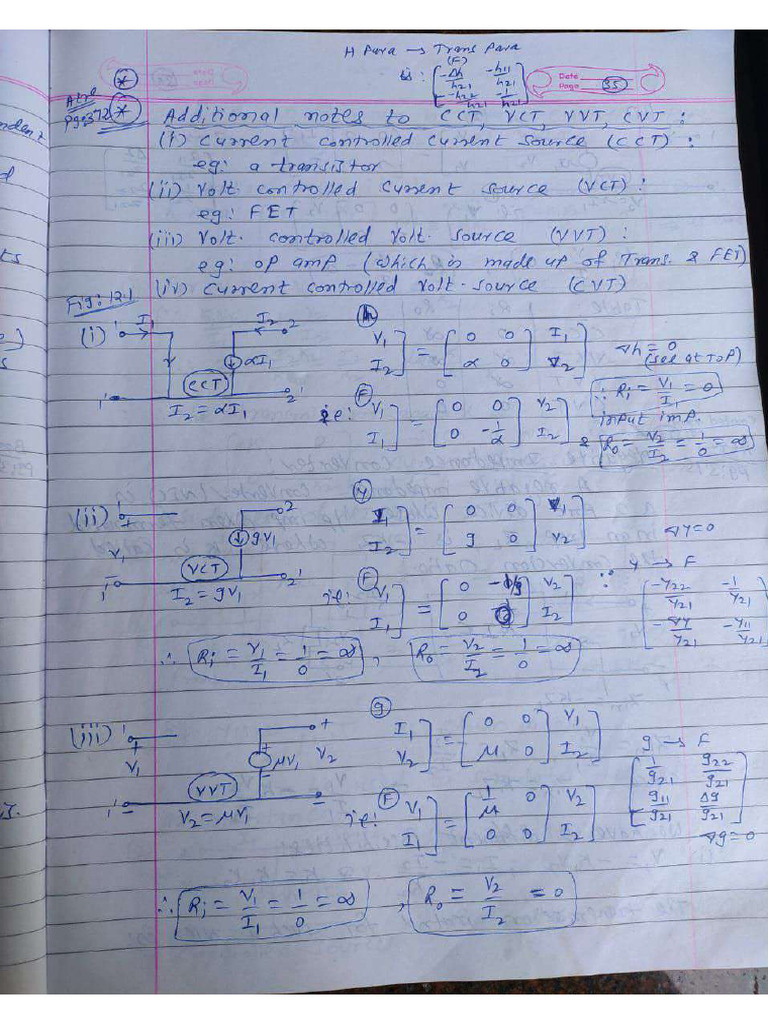 H Para → Trans Para
(F)
is : [ -Δh/h21  -h11/h21
-h22/h21  -1/h21 ]
Date
Page 35
pg:372
Additional notes to CCT, VCT, VVT, CVT :
(i) Current controlled current source (CCT) :
eg: a transistor
(ii) Volt. controlled current source (VCT) :
eg: FET
(iii) Volt. controlled volt. source (VVT) :
eg: op amp (which is made up of Trans. & FET)
(iv) Current controlled volt. source (CVT)
Fig: 12.1
(i) 1 I1 I2 2
αI1
CCT
1' 2'
I2 = αI1
h
V1
I2 ] = [ 0 0
α 0 ] I1
V2 ]
Δh = 0
(see at TOP)
∵ Ri = V1/I1 = 0
input imp.
& Ro = V2/I2 = 1/0 = ∞
ie: F
V1
I1 ] = [ 0 0
0 -1/α ] V2
I2 ]
(ii) 1 + 2
gV1
V1
VCT
1' 2'
I2 = gV1
Y
I1
I2 ] = [ 0 0
g 0 ] V1
V2 ]
ΔY = 0
ie: F
V1
I1 ] = [ 0 -1/g
0 0 ] V2
I2 ]
∵ Y → F
[ -Y22/Y21  -1/Y21
-ΔY/Y21  -Y11/Y21 ]
∴ Ri = V1/I1 = 1/0 = ∞ , Ro = V2/I2 = 1/0 = ∞
(iii) 1 + +
μV1 V2
V1
VVT
1'
V2 = μV1
g
I1
V2 ] = [ 0 0
μ 0 ] V1
I2 ]
g → F
[ 1/g21  g22/g21
g11/g21  Δg/g21 ]
Δg = 0
ie: F
V1
I1 ] = [ 1/μ 0
0 0 ] V2
I2 ]
∴ Ri = V1/I1 = 1/0 = ∞ , Ro = V2/I2 = 0